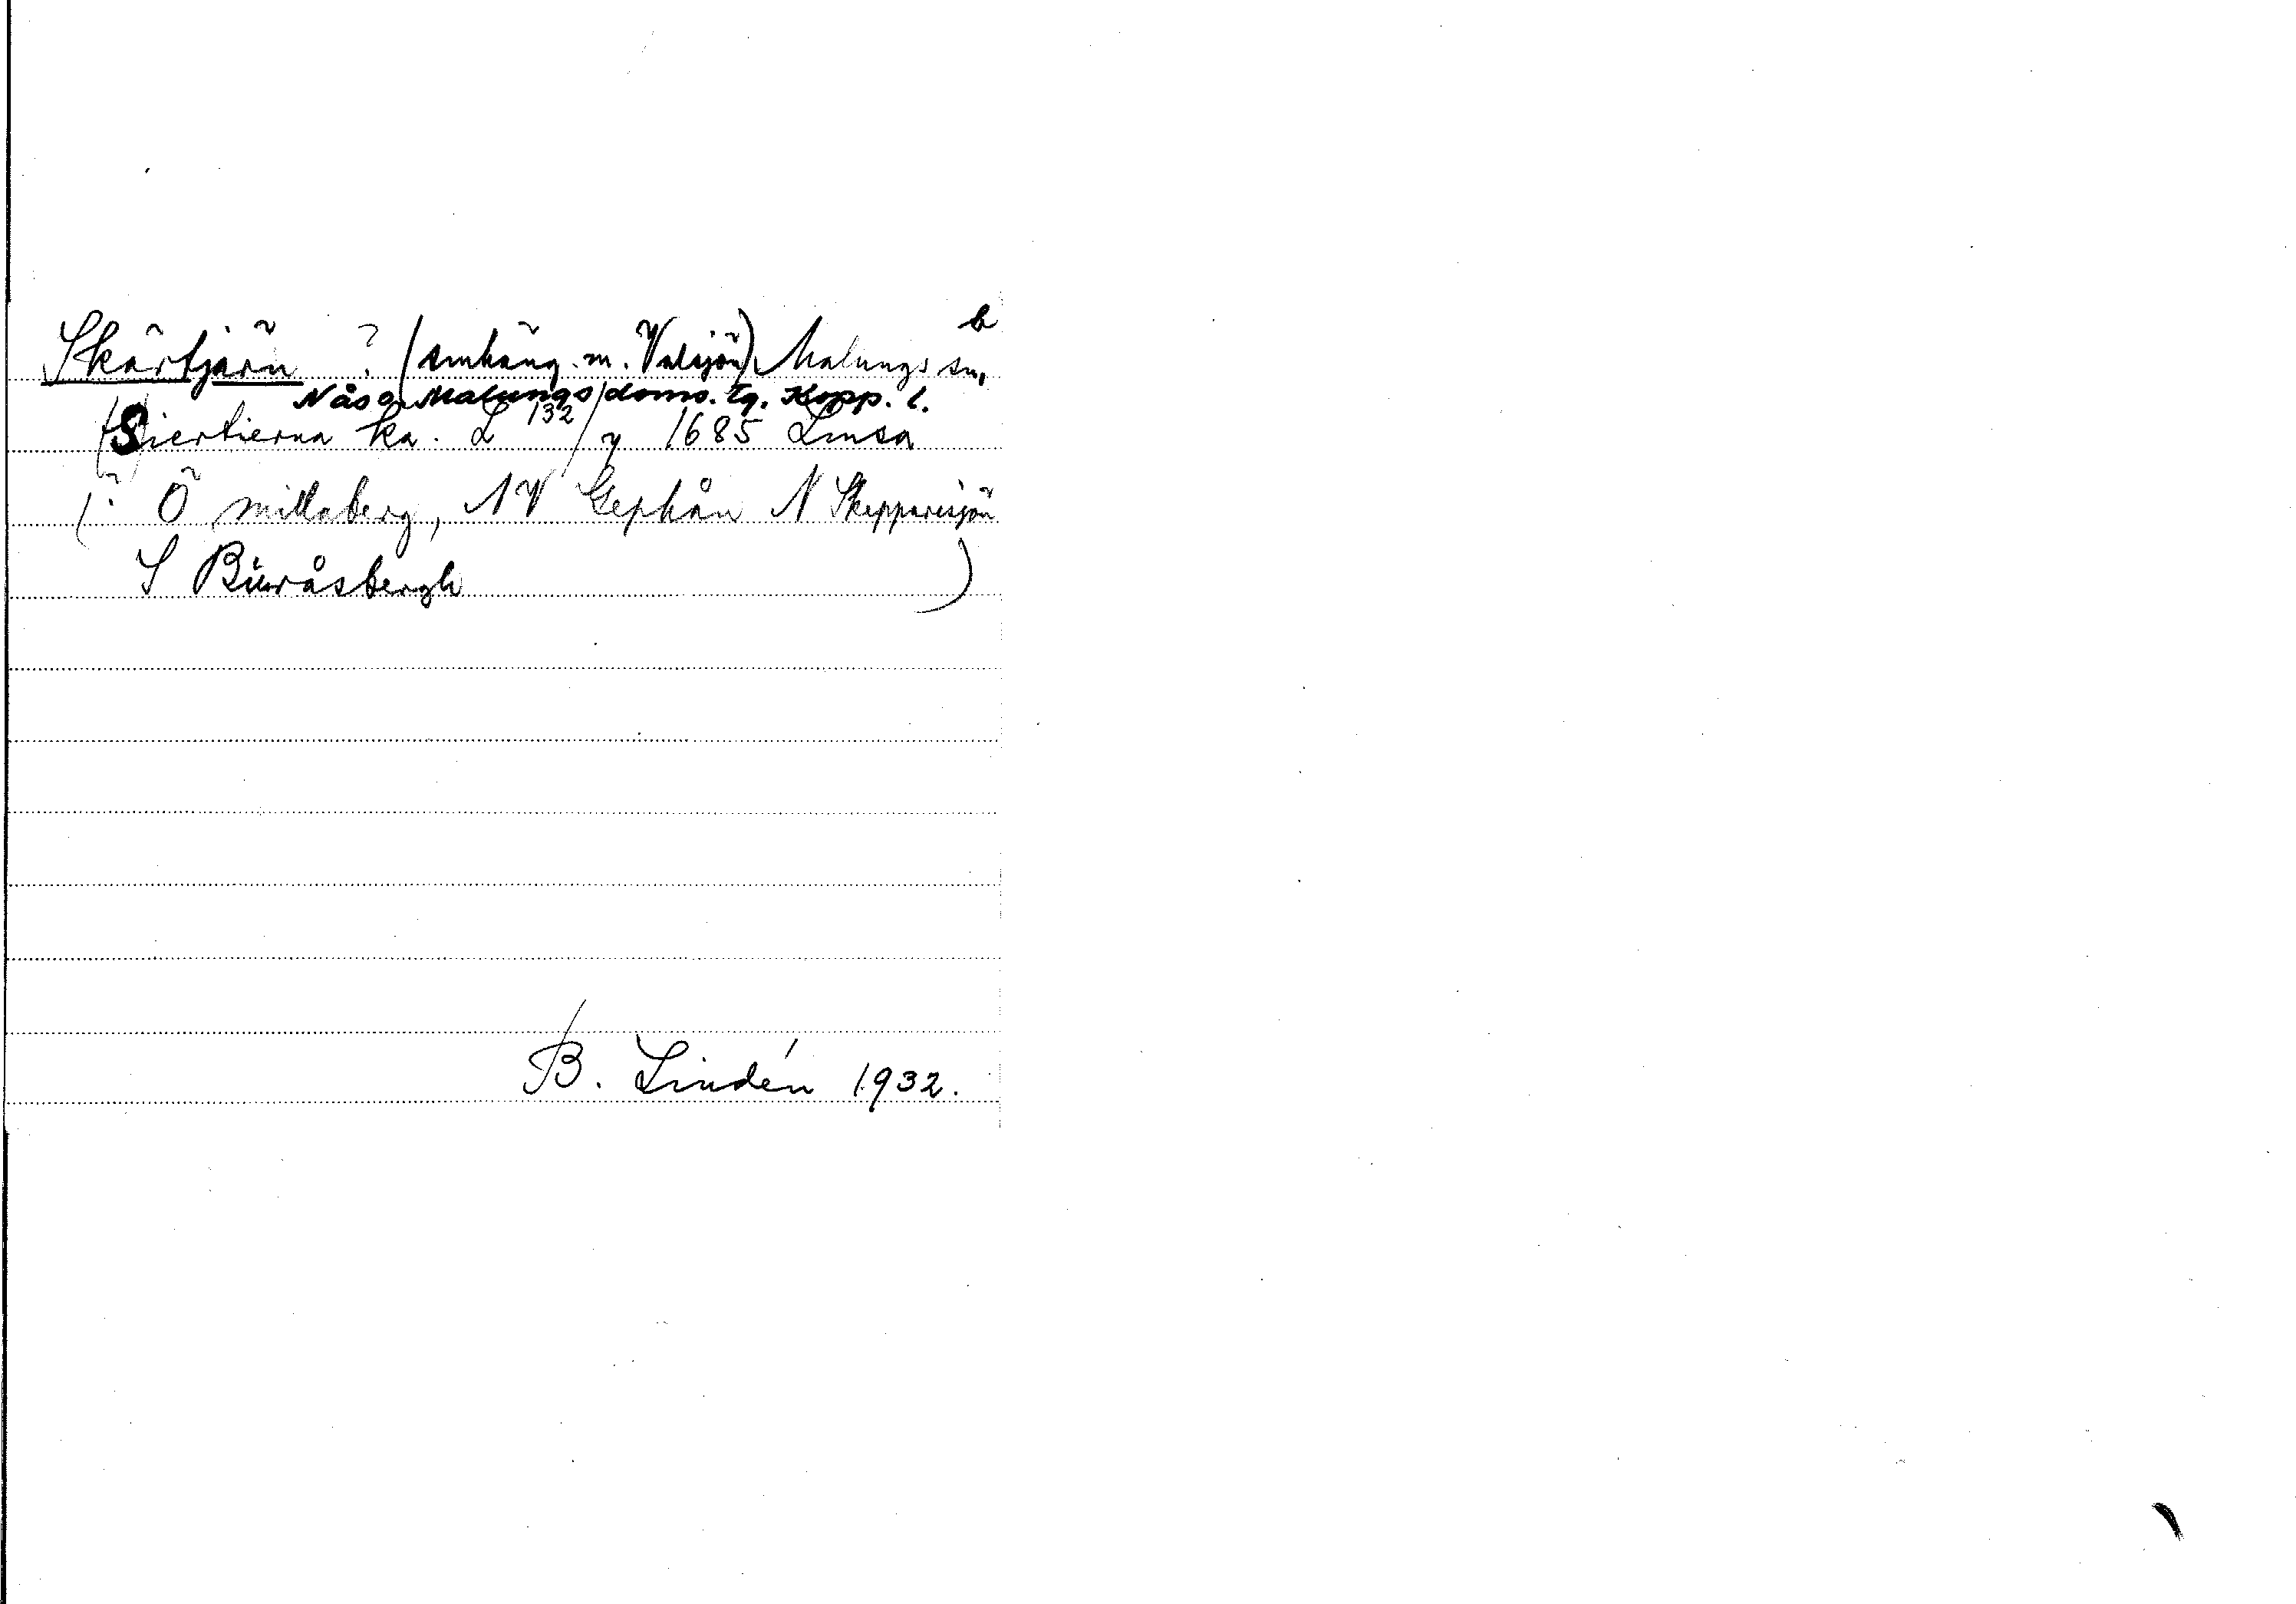 b
Skärtjärn ? (smhäng. m. Valsjön) Malungs sn,
Nås o. Malungs doms. tg. Kopp. l.
(S)iertierna ka. L 132/y 1685 Lmsa
(: Ö millaberg, NV Gephån N Skepparesjön
S Biuråsbergh )
B. Lindén 1932.